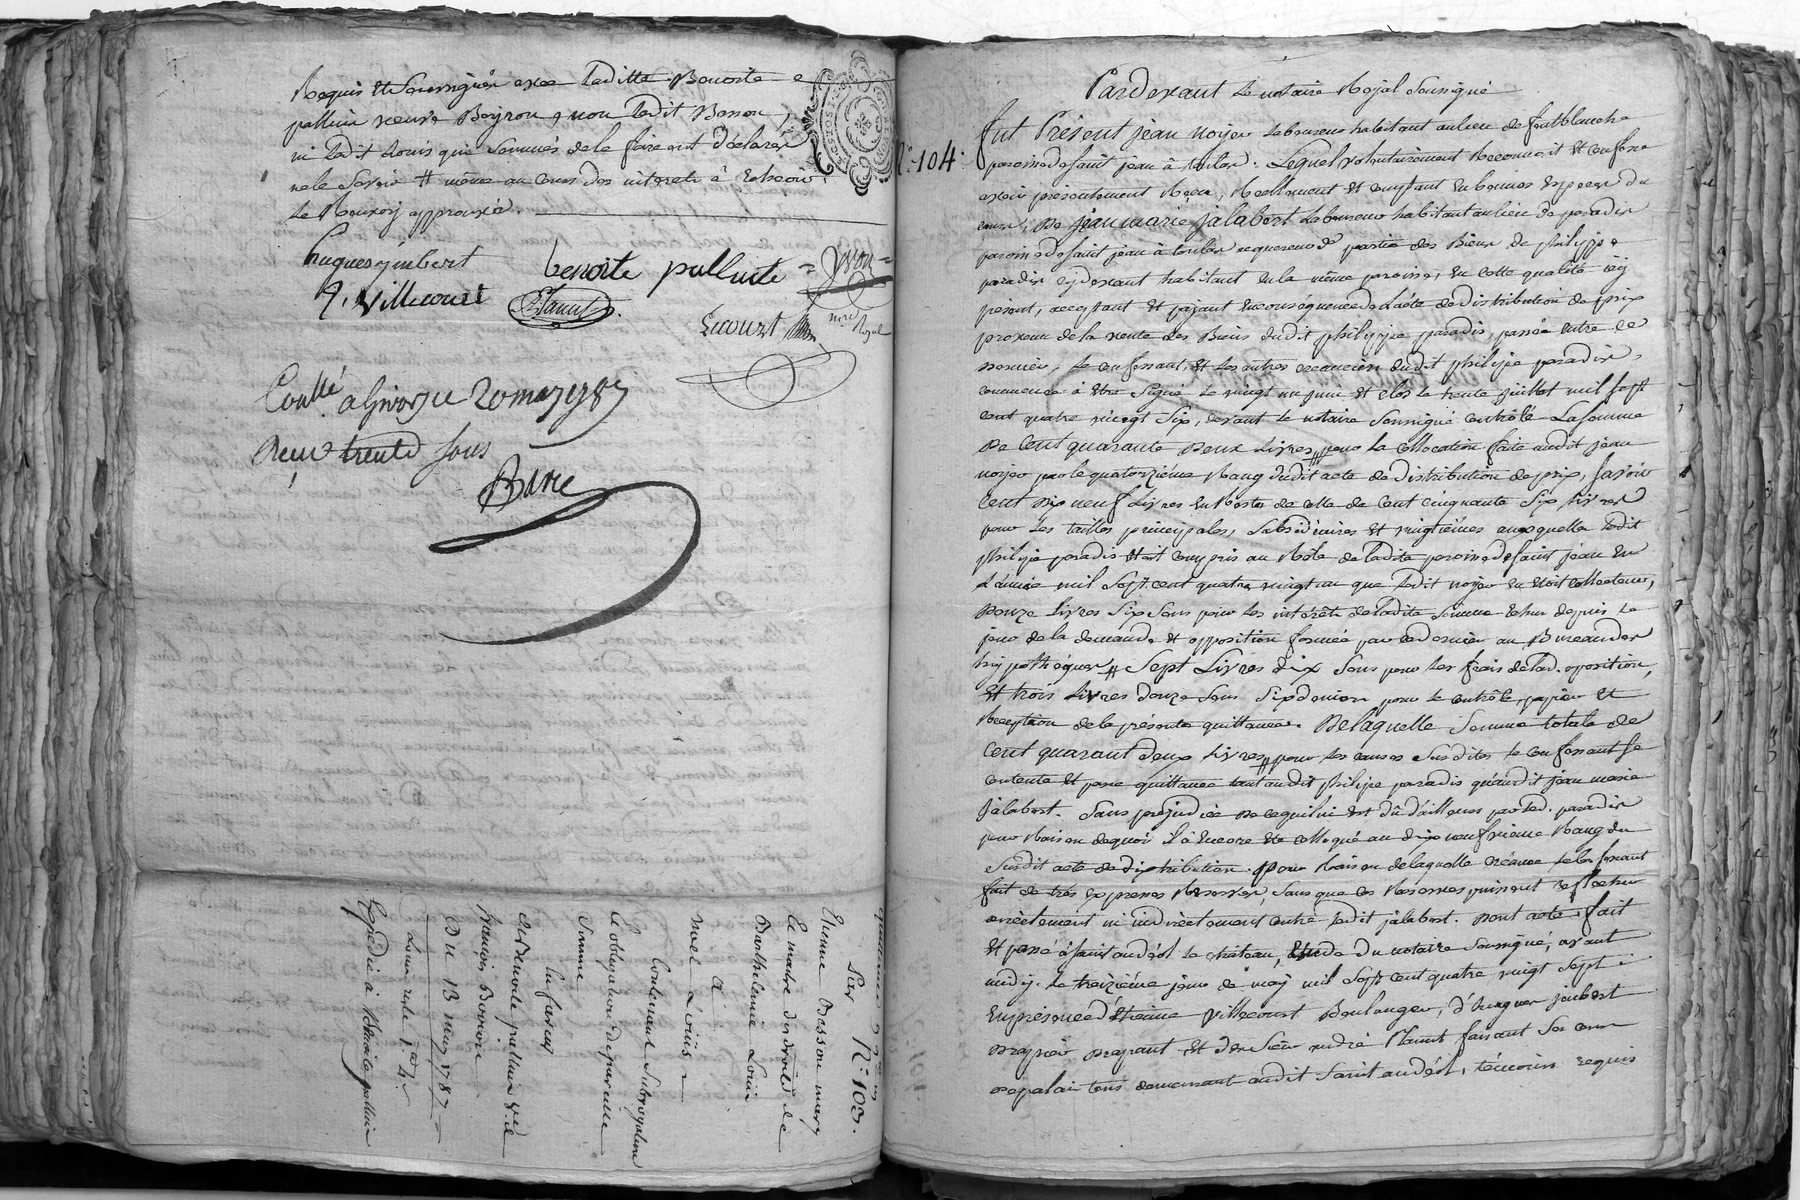 Requis Et Soussignés avec laditte Benoite
palluin veuve Boiron, non ledit Besson,
ni ledit Louis qui sommés de le faire ont déclarés
ne le savoir # même au cours des interets à Echeoir.
Le Renvoij approuvé.
hugues jmbert
benoite palluite
E, Villecourt
Lecourt
nre Royal
Conllé a Givors ce 20 may 1787
Reçu trente sous
Barre
quittance
Lier N° 103.
Etienne Besson mary
Et maitre des droits de
Barthelemie Louis
A
noel Louis
Contenant Subrogation
et obligation de pareille
Somme
En faveur
de Benoite palluin Vve de
François Boiron
Du 13 may 1787
Expédié à Benoite palluin
N° 104.
Pardevant Le notaire Royal Soussigné
fut Présent jean noijer Laboureur habitant au lieu de fontblanche
paroisse de saint jean à toulas. Lequel volontairement Reconnoit Et confesse
avoir présentement Reçu, Reellement Et comptant En bonnes Especes du
cours, De jean marie jalabert Laboureur habitant au lieu de paradis
paroisse de saint jean à toulas acquereur de partie des Biens de philippe
paradis cydevant habitant En la même paroisse, En cette qualité icy
présent, acceptant Et paijant En conséquence de L'acte de distribution de prix
provenu de la vente des Biens dudit philippe paradis, passée entre ce
dernier, Le confessant, Et Les autres créanciers dudit philippe paradis,
commencé à Etre Signé Le vingt un juin Et clos Le trente juillet mil sept
cent quatre vingt Six, devant Le notaire Soussigné controlé La somme
De Cent quarante Deux Livres, pour La collocation faite audit jean
noijer par le quatorzième Rang dudit acte de distribution de prix, savoir
Cent Dix neuf Livres En Reste de celle de Cent cinquante Six Livres
pour Les tailles principales, Subsidiaires Et vingtièmes auxquelles Ledit
philippe paradis Etoit compris au Rôle de Ladite paroisse de saint jean En
L'année mil Sept cent quatre vingt un que Ledit noijer En Etoit collecteur,
Douze Livres Six Sous pour Les intérêts de Ladite Somme Echus depuis Le
jour de la demande Et opposition formée par ce dernier au Bureau des
hijpothèques, Sept Livres dix Sous pour Les frais de lad. oposition,
Et trois Livres douze Sous Six deniers pour Le controle, papier Et
Reception de la présente quittance. De Laquelle Somme totale de
Cent quarant deux Livres, pour Les causes Susdites Le confessant Se
contente Et passe quittance tant audit philipe paradis qu'audit jean marie
jalabert. Sans préjudice De ce qui lui Est dû d'ailleurs par led. paradis
pour Raison de quoi il à Encore Eté colloqué au dix neufvieme Rang du
Susdit acte de distribution. Pour Raison de laquelle créance Le Confessant
fait de très Expresses Réserves, Sans que ces Reserves puissent Reflechir
directement ni indirectement contre Ledit jalabert. Dont acte, fait
Et passé à saint andéol Le château, Etude du notaire Soussigné, avant
midij. Le treizième jour de maij mil Sept cent quatre vingt Sept.
En présence d'étienne Villecourt Boulanger, d'hugues jmbert
Drapier Drapant Et de Sieur andré
tous demeurant audit saint andéol, témoins requis